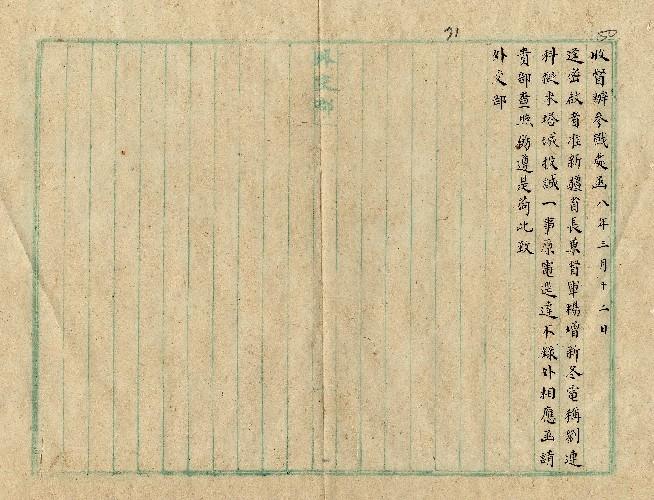 50
31
收督辦參戰處函八年三月十二日
逕密啟者准新疆省長兼督軍楊增新冬電稱劉連
科擬来塔城投誠一事原電逕達不錄外相應函請
貴部查照飭遵是荷此致
外交部
外交部